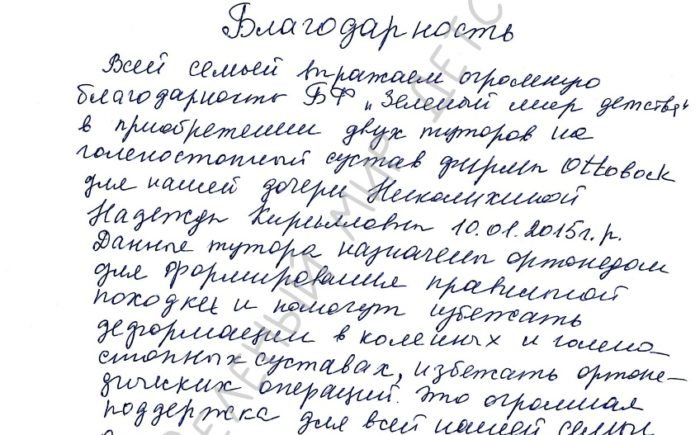 Благодарность
Всей семьёй выражаем огромную
благодарность БФ „Зеленый мир детства“
в приобретении двух туторов на
голеностопный сустав фирмы Ottobock
для нашей дочери
Надежды Кирилловны 10.01.2015г.р.
Данные тутора назначены ортопедом
для формирования правильной
походки и помогут избежать
деформации в коленных и голено-
стопных суставах, избежать ортопе-
дических операций. Это огромная
поддержка для всей нашей семьи
ЗЕЛЕНЫЙ МИР ДЕТС